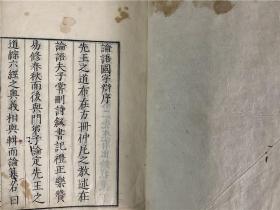 論語國字辯序
先王之道布在方冊仲尼之教述在
論語夫子嘗刪詩叙書記禮正樂贊
易修春秋而後與門弟子論定先王之
道綜六經之奥義相與輯而論篹名曰